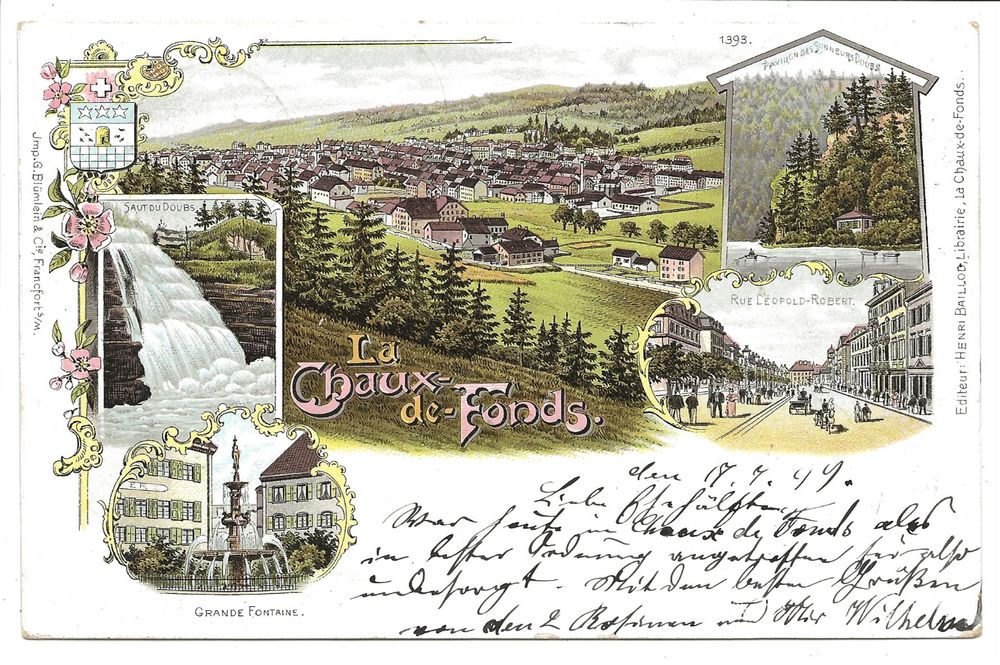 1393.
PAVILLON DES SONNEURS DOUBS
SAUT DU DOUBS
RUE LÉOPOLD-ROBERT.
La
Chaux-
de-Fonds.
GRANDE FONTAINE.
Jmp. G. Blümlein & Cie, Francfort s/M.
Editeur: HENRI BAILLOD, Librairie, La Chaux-de-Fonds.
den 17.7.99.
Liebe Ehehälfte
War heute in Chaux de Fonds alles
in bester Ordnung angetroffen sei also
unbesorgt. Mit den besten Grüßen
von den 2 und Wilhelm